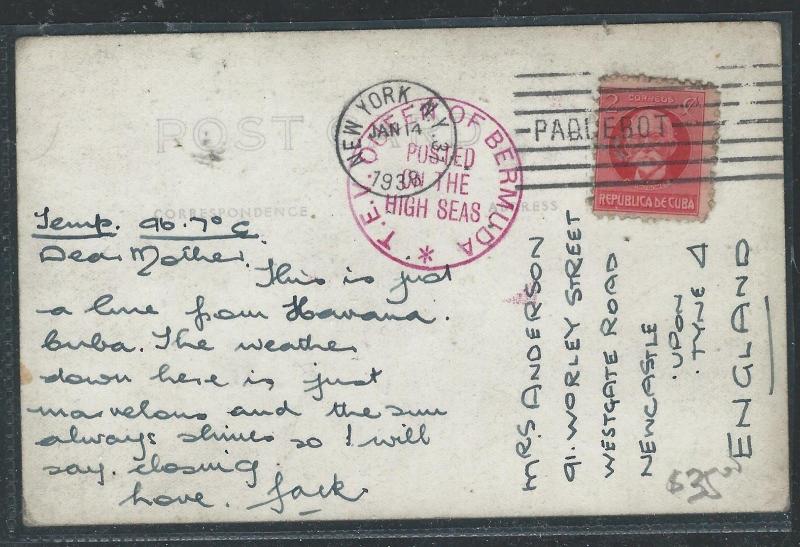 POST CARD
CORRESPONDENCE
ADDRESS
NEW YORK, N.Y.
JAN 14
1938
T.E.V. QUEEN OF BERMUDA *
POSTED
ON THE
HIGH SEAS
PAQUEBOT
CORREOS
2
REPUBLICA DE CUBA
Temp. 96.7° C
Dear Mother.
This is just
a line from Havana.
Cuba. The weather
down here is just
marvelous and the sun
always shines so I will
say. closing.
Love. Jack
MRS ANDERSON
91. WORLEY STREET
WESTGATE ROAD
NEWCASTLE
UPON
TYNE 4
ENGLAND
$35